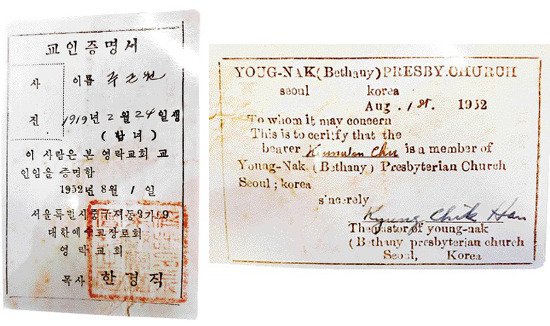 교인증명서
사 이름 주근원
진 1919년 2월 24일생
(합녀)
이 사람은 본 영락교회 교
인임을 증명함
1952년 8월 1일
서울특별시중구저동2가 9
대한예수교장로회
영락교회
목사 한경직
YOUG-NAK (Bethany) PRESBY.CHURCH
seoul korea
Aug. 1st. 1952
To whom it may concern
This is to cirtify that the
bearer Chu is a member of
Young-Nak (Bethany) Presbyterian Church
Seoul; korea
sincrely
Kyung Chik Han
The pastor of young-nak
(Bethany presbyterian church
Seoul, Korea